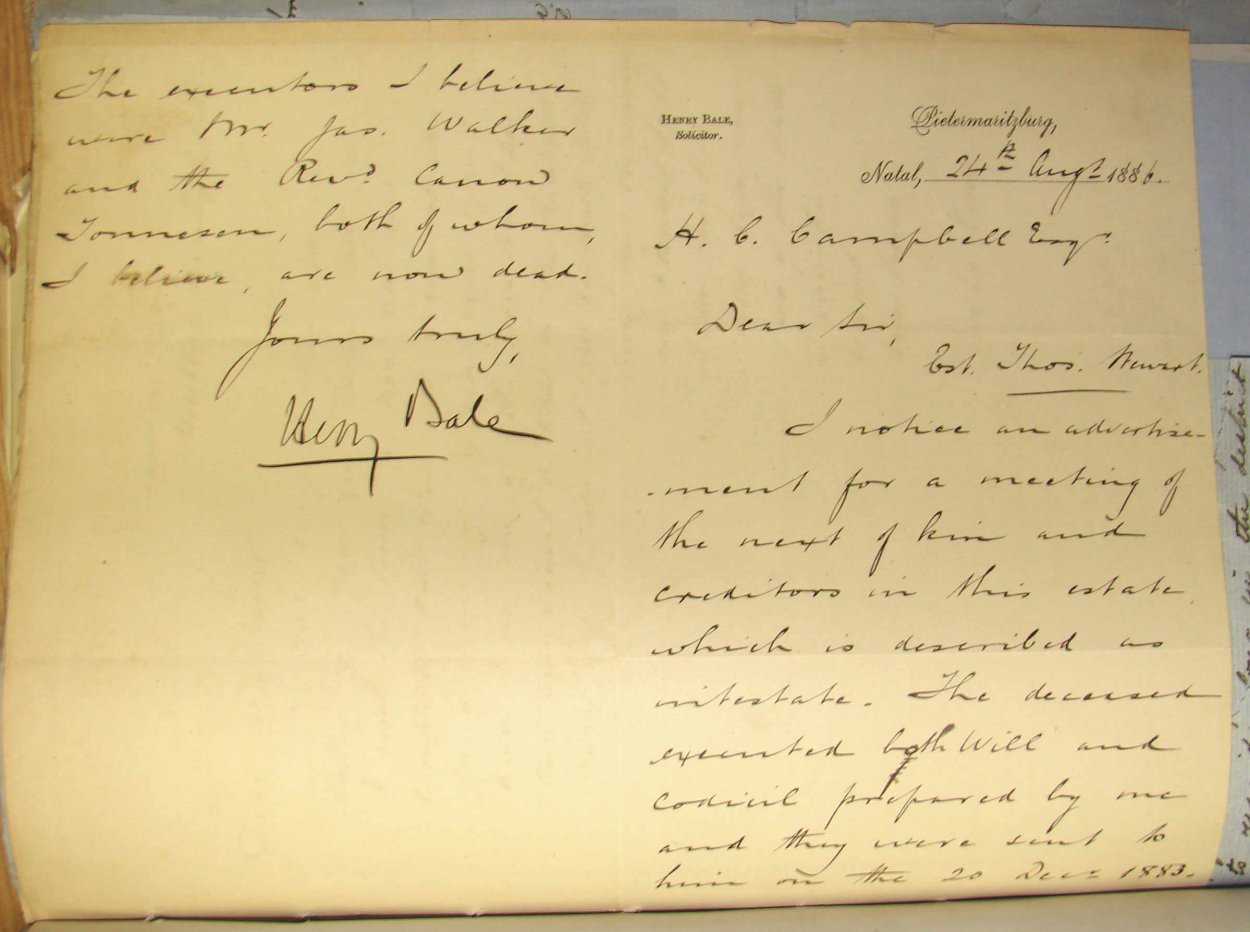 HENRY BALE,
Solicitor.
Pietermaritzburg,
Natal, 24th Augt 1886.
H. C. Campbell Esqr
Dear Sir,
Est. Thos. Stewart.
I notice an advertise-
-ment for a meeting of
the next of kin and
creditors in this estate
which is described as
intestate. The deceased
executed both Will and
Codicil prepared by me
and they were sent to
him on the 20 Decr 1883.
The executors I believe
were Mr. Jas. Walker
and the Revd. Canon
Tonnesen, both of whom,
I believe, are now dead.
Yours truly,
Henry Bale
the district